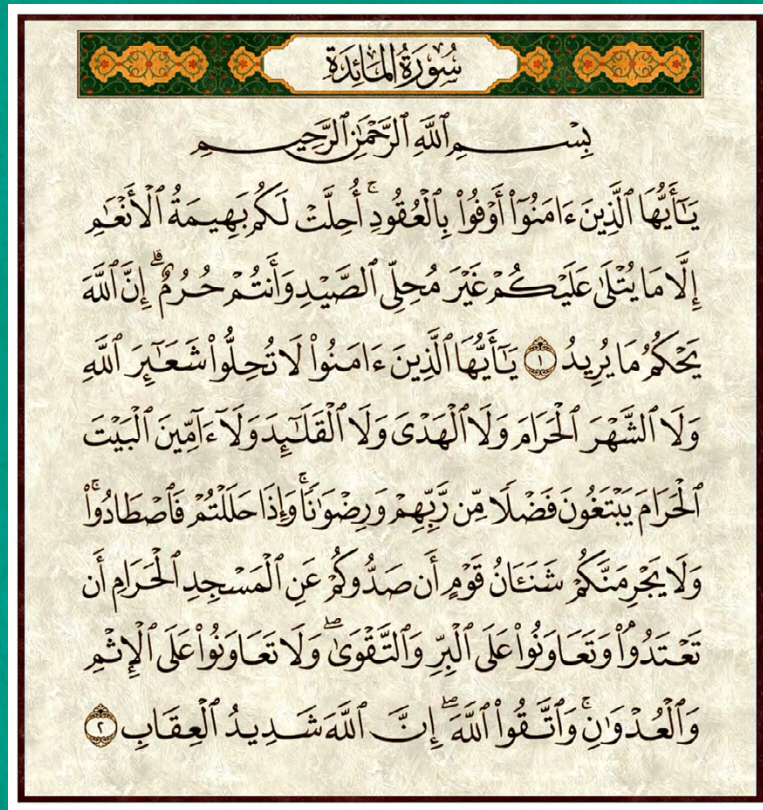 سُورَةُ المَائِدَةِ
بِسۡمِ ٱللَّهِ ٱلرَّحۡمَٰنِ ٱلرَّحِيمِ
يَٰٓأَيُّهَا ٱلَّذِينَ ءَامَنُوٓاْ أَوۡفُواْ بِٱلۡعُقُودِۚ أُحِلَّتۡ لَكُم بَهِيمَةُ ٱلۡأَنۡعَٰمِ
إِلَّا مَا يُتۡلَىٰ عَلَيۡكُمۡ غَيۡرَ مُحِلِّي ٱلصَّيۡدِ وَأَنتُمۡ حُرُمٌۗ إِنَّ ٱللَّهَ
يَحۡكُمُ مَا يُرِيدُ ١ يَٰٓأَيُّهَا ٱلَّذِينَ ءَامَنُواْ لَا تُحِلُّواْ شَعَٰٓئِرَ ٱللَّهِ
وَلَا ٱلشَّهۡرَ ٱلۡحَرَامَ وَلَا ٱلۡهَدۡيَ وَلَا ٱلۡقَلَٰٓئِدَ وَلَآ ءَآمِّينَ ٱلۡبَيۡتَ
ٱلۡحَرَامَ يَبۡتَغُونَ فَضۡلٗا مِّن رَّبِّهِمۡ وَرِضۡوَٰنٗاۚ وَإِذَا حَلَلۡتُمۡ فَٱصۡطَادُواْۚ
وَلَا يَجۡرِمَنَّكُمۡ شَنَـَٔانُ قَوۡمٍ أَن صَدُّوكُمۡ عَنِ ٱلۡمَسۡجِدِ ٱلۡحَرَامِ أَن
تَعۡتَدُواْۘ وَتَعَاوَنُواْ عَلَى ٱلۡبِرِّ وَٱلتَّقۡوَىٰۖ وَلَا تَعَاوَنُواْ عَلَى ٱلۡإِثۡمِ
وَٱلۡعُدۡوَٰنِۚ وَٱتَّقُواْ ٱللَّهَۖ إِنَّ ٱللَّهَ شَدِيدُ ٱلۡعِقَابِ ٢